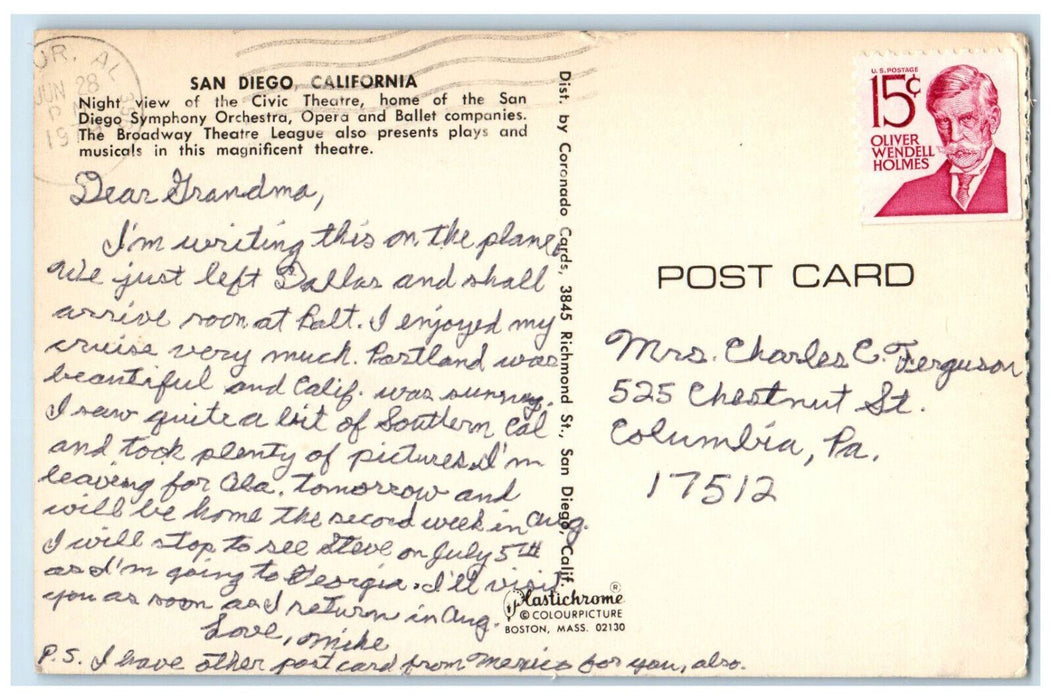 UR. AL
JUN 28
P
19
SAN DIEGO, CALIFORNIA
Night view of the Civic Theatre, home of the San
Diego Symphony Orchestra, Opera and Ballet companies.
The Broadway Theatre League also presents plays and
musicals in this magnificent theatre.
Dear Grandma,
I'm writing this on the plane.
We just left Dallas and shall
arrive soon at Balt. I enjoyed my
cruise very much. Portland was
beautiful and Calif. was sunny.
I saw quite a bit of Southern Cal
and took plenty of pictures. I'm
leaving for Ala. tomorrow and
will be home the second week in Aug.
I will stop to see Steve on July 5th
as I'm going to Georgia. I'll visit
you as soon as I return in Aug.
Love, Mike
P.S. I have other post card from Mexico for you, also.
Dist. by Coronado Cards, 3845 Richmond St., San Diego, Calif.
Plastichrome ®
© COLOURPICTURE
BOSTON, MASS. 02130
U.S. POSTAGE
15¢
OLIVER
WENDELL
HOLMES
POST CARD
Mrs. Charles C. Ferguson
525 Chestnut St.
Columbia, Pa.
17512